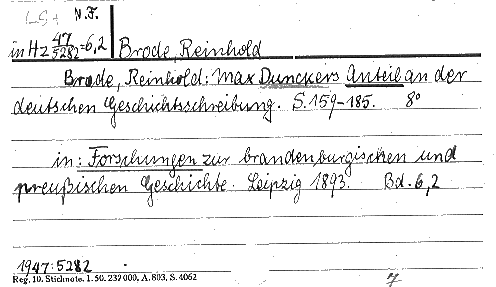 LS+ N.F.
in HZ 47/5282=6,2 Brode, Reinhold
Brode, Reinhold: Max Dunckers Anteil an der
deutschen Geschichtsschreibung. S.159-185. 8°
in: Forschungen zur brandenburgischen und
preußischen Geschichte. Leipzig 1893. Bd. 6,2
1947:5282
Reg. 10. Stichnote. 1. 50. 232 000, A. 803, S. 4062
7